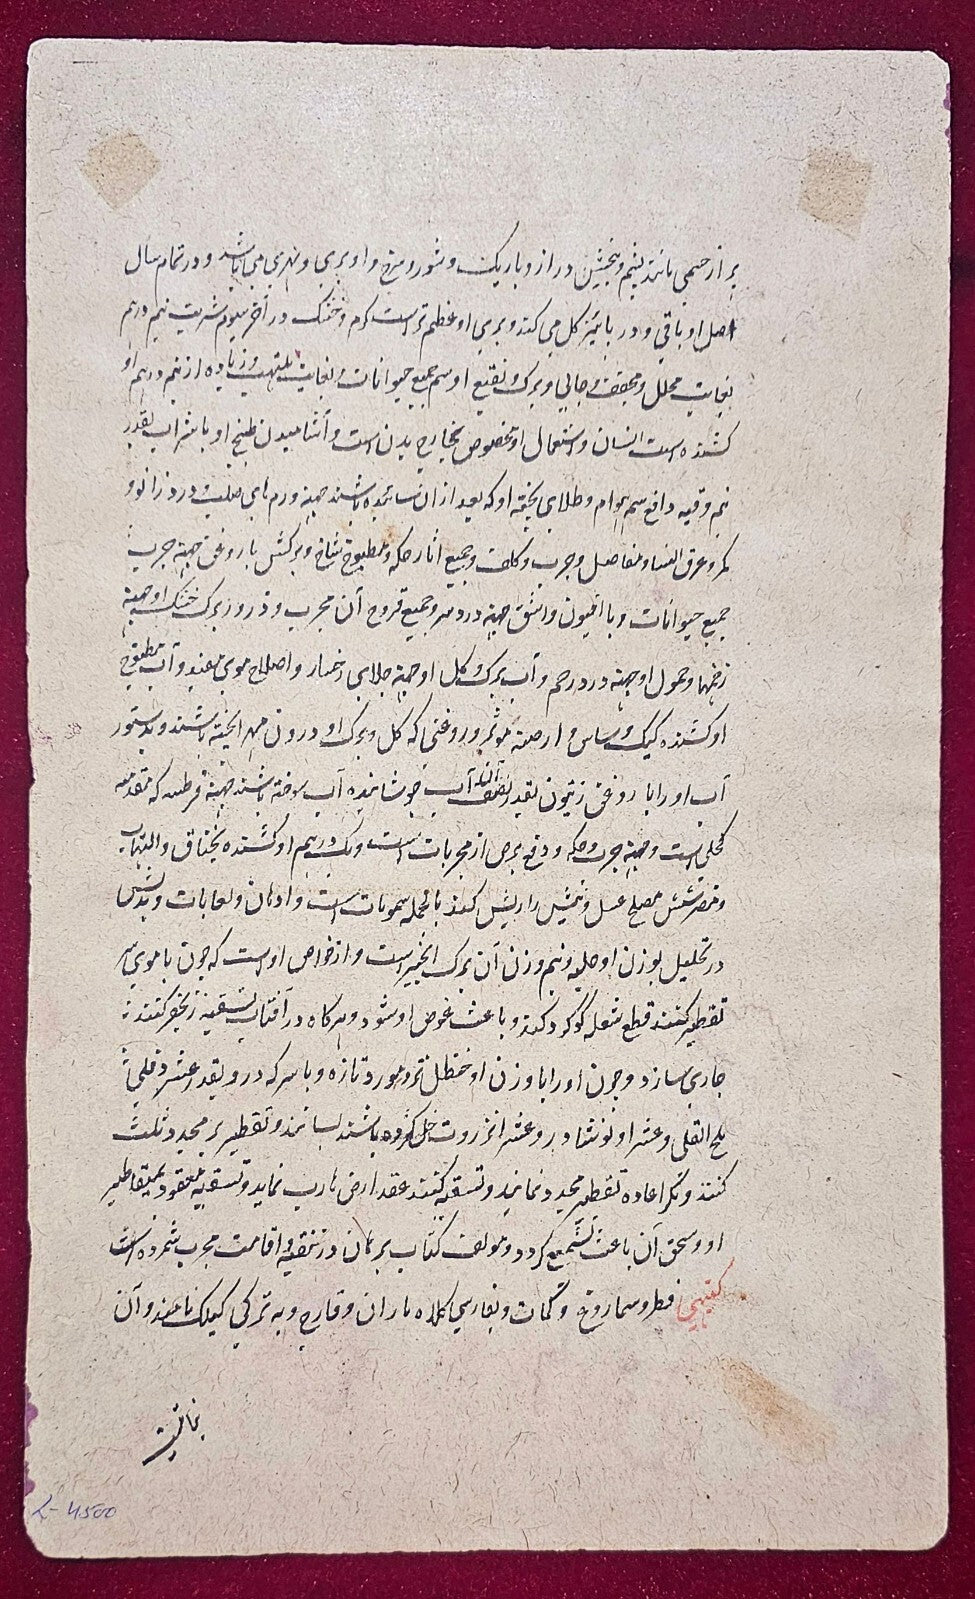 پر از جسمی مانند پشم و بیخش دراز و باریک و شور و سرخ و او بری و نهری می باشد و در تمام سال
اصل او باقی و در پائیز گل می کند و بری او عظیم تر است گرم و خشک در آخر سیوم شربت نیم درهم
بغایت محلل و مجفف و جالی و برگ و نقیع او سم جمیع حیوانات و بغایت و زیاده از نیم درهم او
کشنده است انسان و استعمال او مخصوص بخارج بدن است و آشامیدن طبیخ او با شراب بقدر
نیم وقیه دافع سم هوام و طلای پخته او که بعد از آن سائیده باشند جهة ورم های صلب و درد زانو و
کمر و عرق النسا و مفاصل و جرب و کلف و جمیع آثار حکه و مطبوخ شاخ و برگش با روغن جهة جرب
جمیع حیوانات و با افیون و اشق جهة درد سر و جمیع قروح آن مجرب و ذرور برگ خشک او جهة
زخمها و حمول او جهة درد رحم و آب برگ و گل او جهة جلای رخسار و اصلاح موی مفید و آب مطبوخ
او کشنده کیک و ساس و ارضه مؤثر و روغنی که گل و برگ او درون مهرا پخته باشند و بدستور
آب او را با روغن زیتون بقدر نصف آب جوشانیده آب سوخته باشند جهة که مقدمه
است و جهة جرب و حکه و دفع برص از مجربات است و یک درهم او کشنده بخناق و التهاب
و مصلح عسل و را ریش کند بالجمله سمومات است و ادهان و لعابات و بدلش
در تحلیل بوزن او حلبه و نیم وزن آن برگ انجیر است و از خواص اوست که چون با موی سر
تقطیر کنند قطع شعله گوگرد کند و باعث غوص او شود و هرگاه در آفتاب تسقیه زنجفر کنند
جاری سازد و چون او را با وزن او حنظل تر و مورد تازه و با سرکه که در و بقدر عشر
ملح القلی و عشر او نوشادر و عشر انزروت حل کرده باشند بسایند و تقطیر بر مجدد ثلث
کنند و مکرر اعاده تقطیر مجدد نمایند و تسقیه کنند عقد ارض هارب نماید و تسقیه معقود بمتقاطر
او و سحق آن باعث تشمیع گردد و مولف کتاب برهان در تنقیه و اقامت مجرب شمرده است
فطر و سماروغ و کمات و بفارسی کلاه باران و قارچ و به ترکی نامند و آن
L-4500